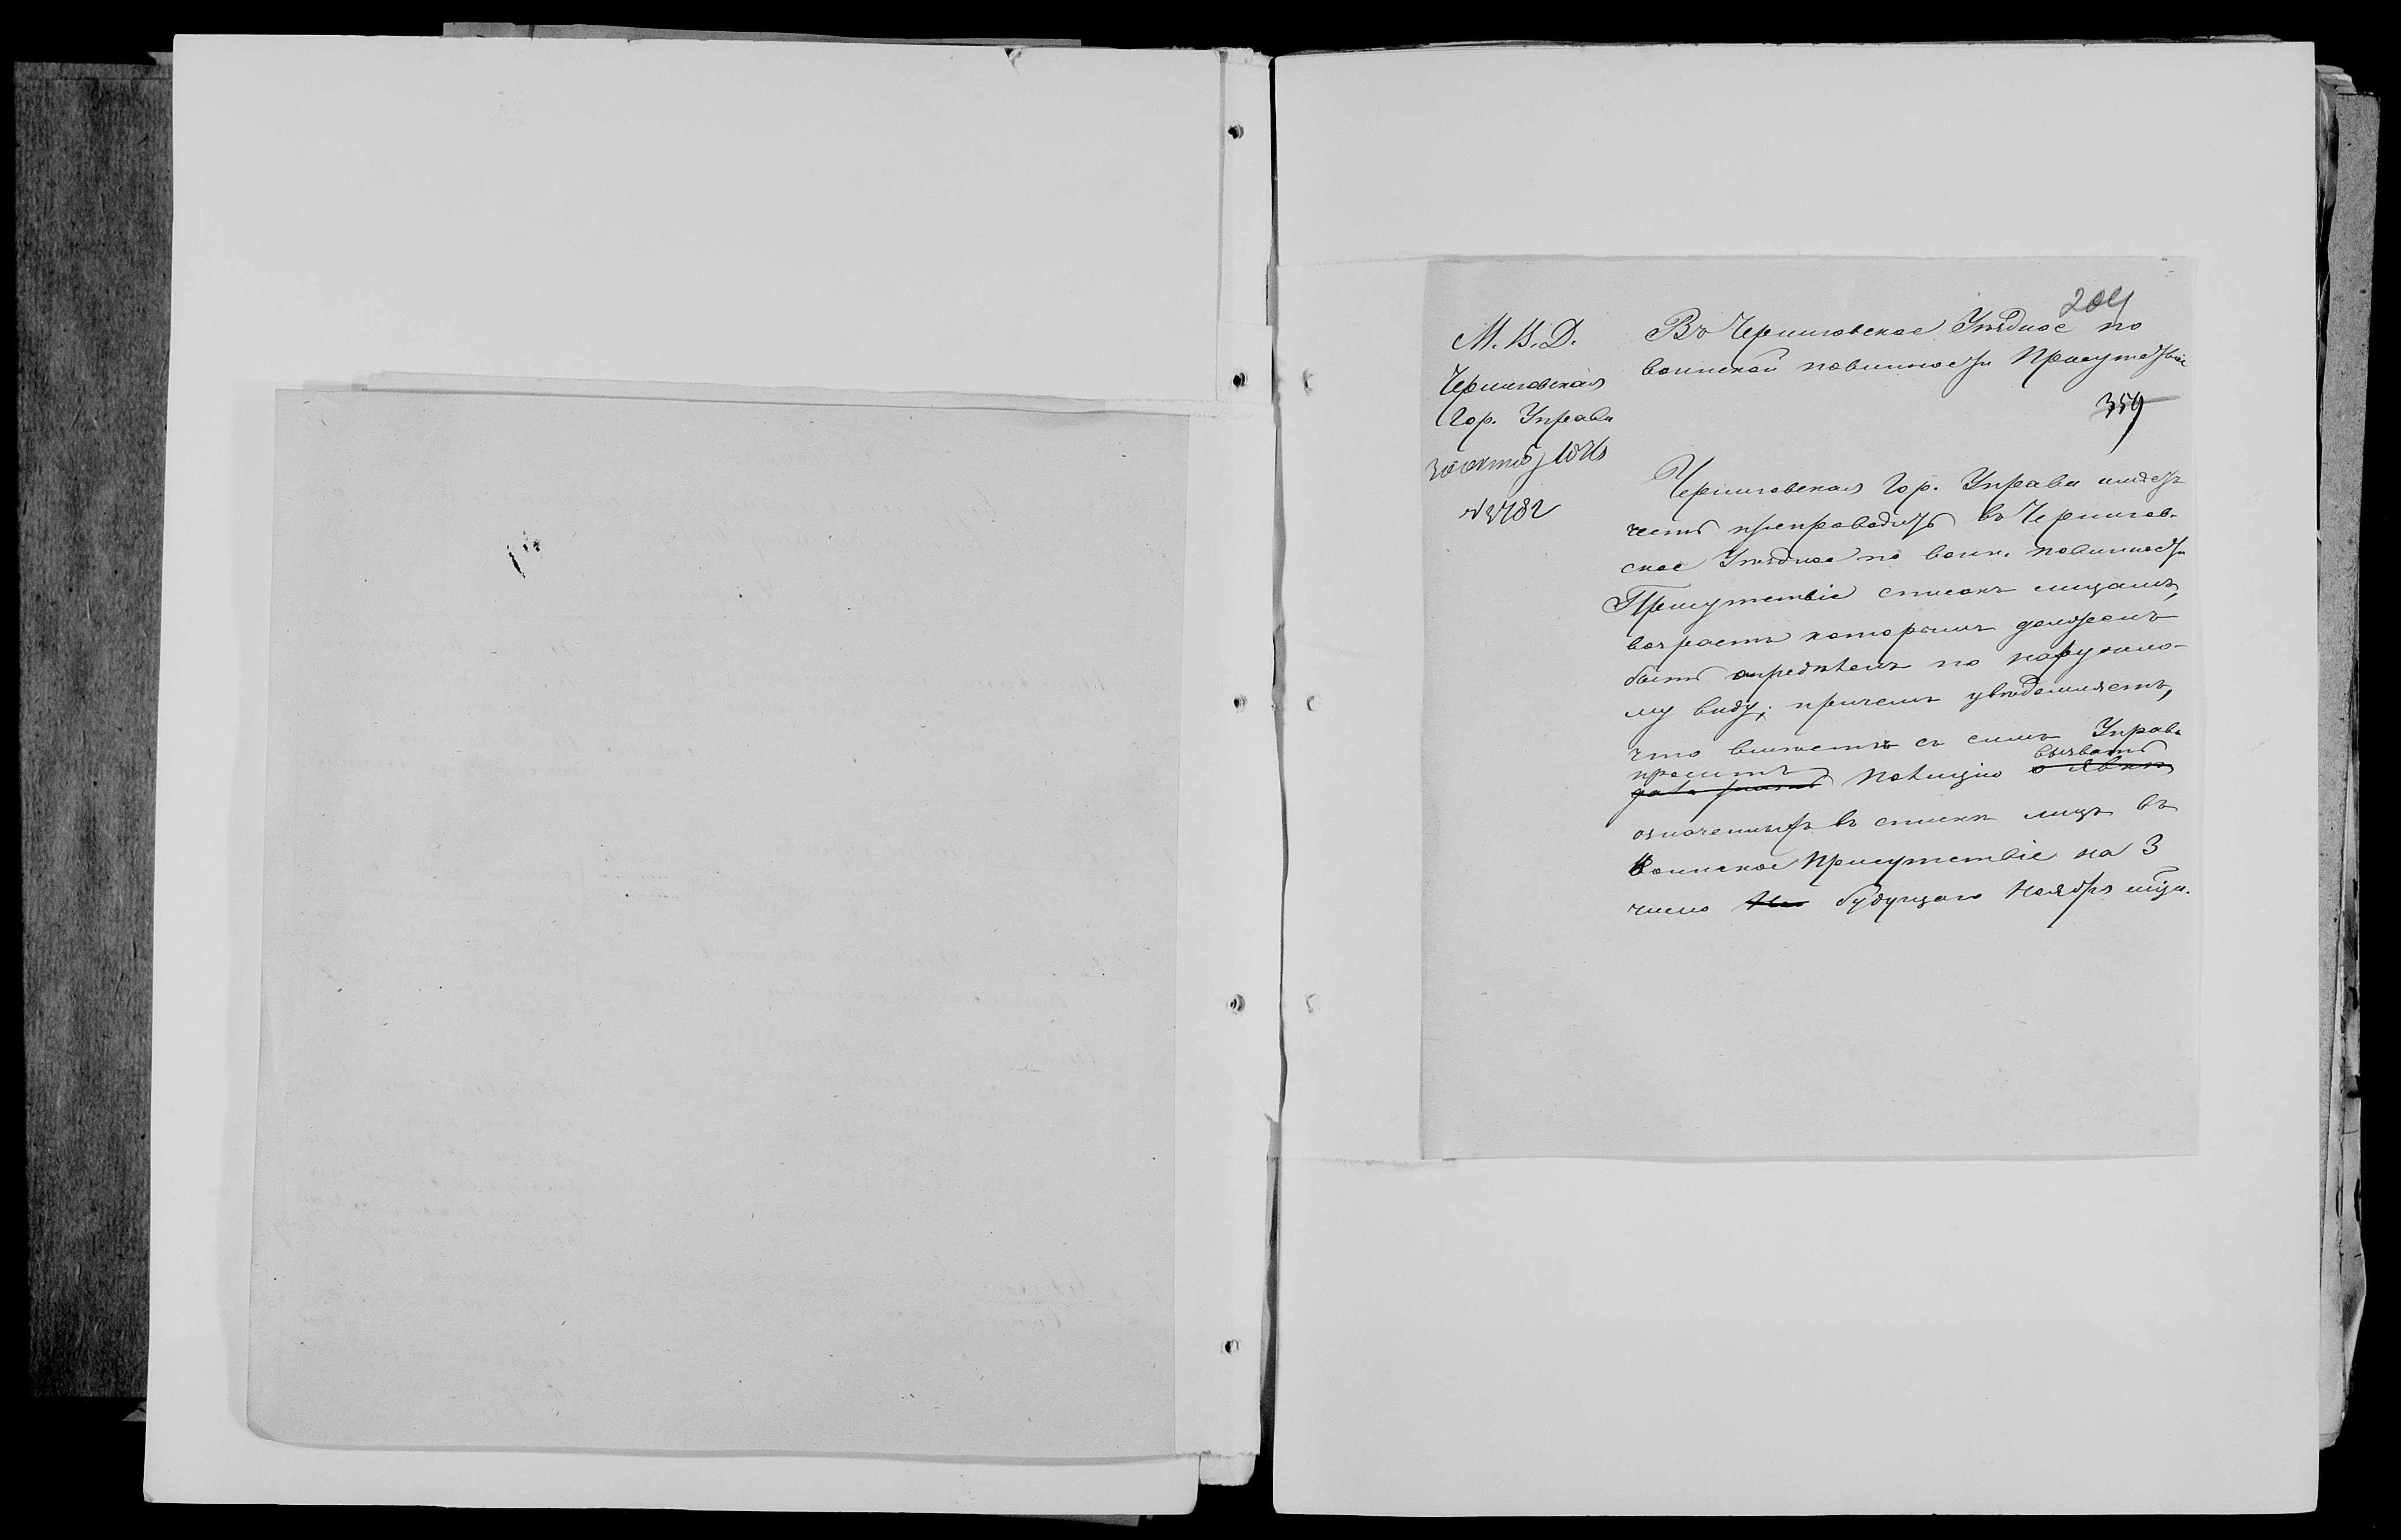 204
М. В. Д.
Черниговская
Гор. Управа
30 октяб
№ 3782
Въ Черниговское Уѣздное по
воинской повинности Присутствіе
359
Черниговская Гор. Управа имѣетъ
честь препроводить въ Чернигов-
ское Уѣздное по воин. повинности
Присутствіе списокъ лицамъ,
возрастъ которымъ долженъ
быть опредѣленъ по наружно-
му виду; причемъ увѣдомляетъ,
что вмѣстѣ съ симъ Управа
проситъ Полицію вызвать
означенныхъ въ спискѣ лицъ въ
Воинское Присутствіе на 3
число будущаго Ноября мѣц.